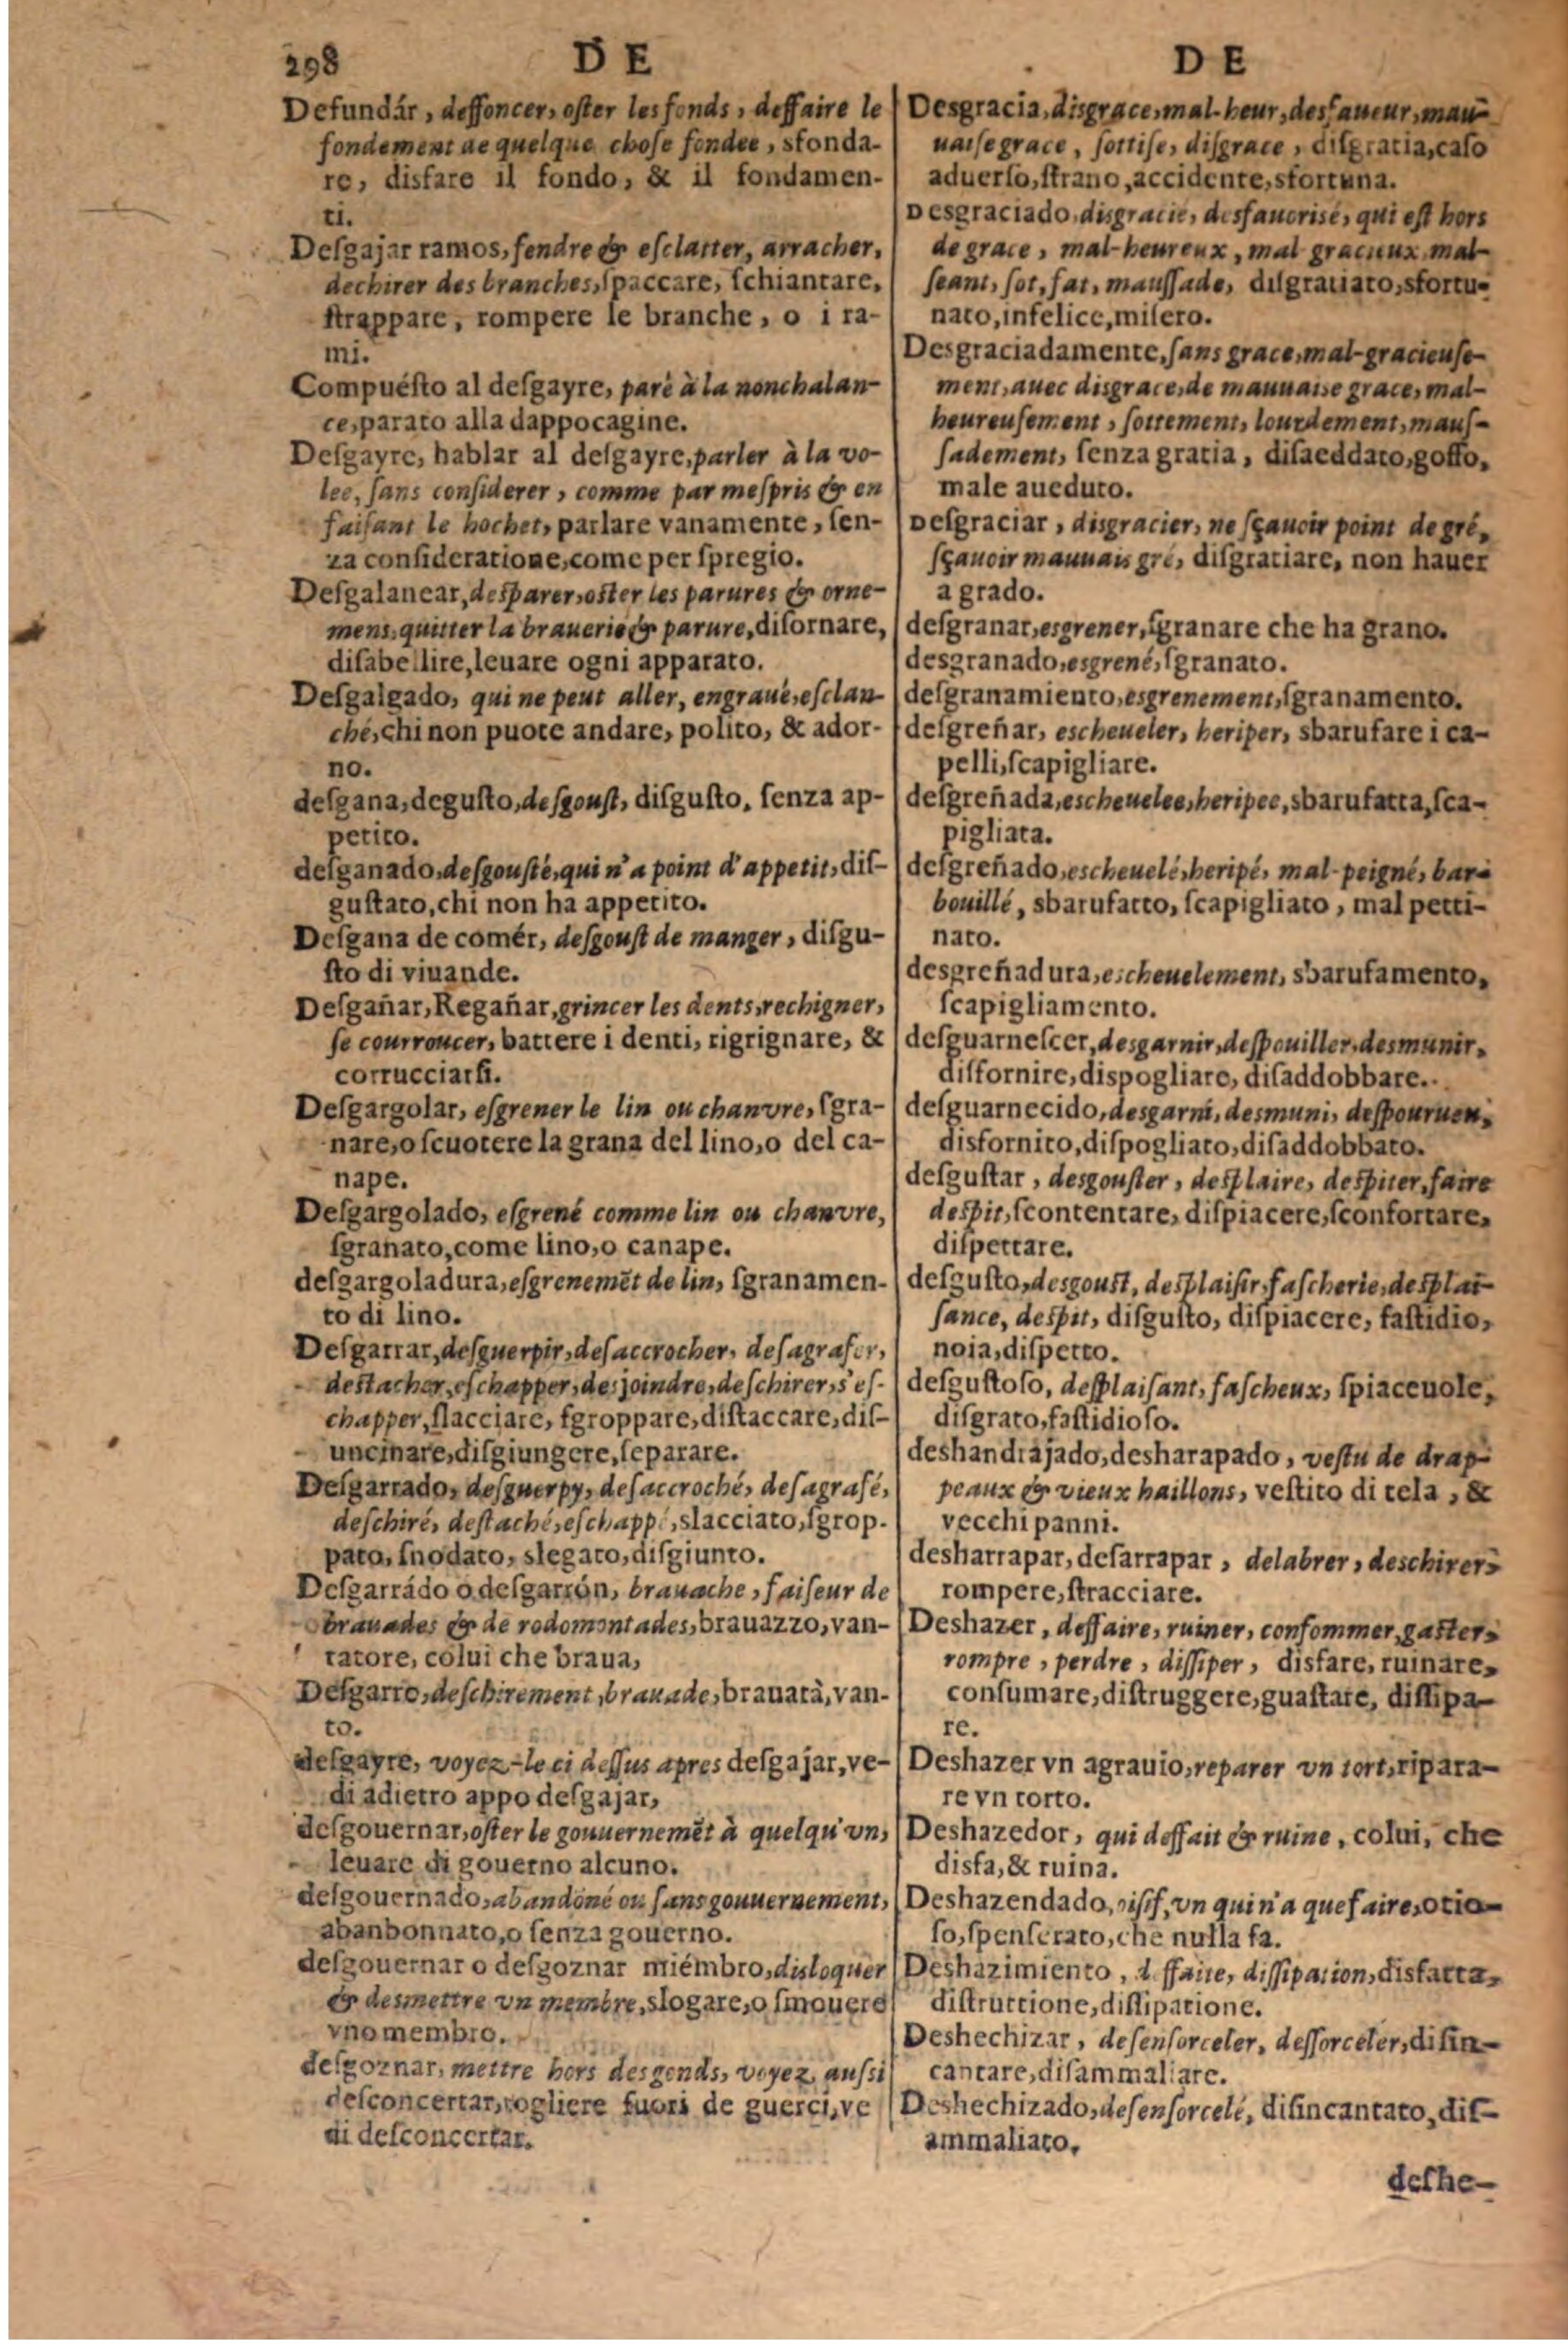 298 DE
Defundár, deffoncer, oſter les fonds, deffaire le
fondement de quelque choſe fondee, sfonda-
re, disfare il fondo, & il fondamen-
ti.
Deſgajar ramos, fendre & eſclatter, arracher,
dechirer des branches, ſpaccare, ſchiantare,
ſtrappare, rompere le branche, o i ra-
mi.
Compuéſto al deſgayre, paré à la nonchalan-
ce, parato alla dappocagine.
Deſgayre, hablar al deſgayre, parler à la vo-
lee, ſans conſiderer, comme par meſpris & en
faiſant le hochet, parlare vanamente, ſen-
za conſideratione, come per ſpregio.
Deſgalanear, deſparer, oſter les parures & orne-
mens, quitter la brauerie & parure, diſornare,
diſabellire, leuare ogni apparato.
Deſgalgado, qui ne peut aller, engraué, eſclan-
ché, chi non puote andare, polito, & ador-
no.
deſgana, deguſto, deſgouſt, diſguſto, ſenza ap-
petito.
deſganado, deſgouſté, qui n'a point d'appetit, diſ-
guſtato, chi non ha appetito.
Deſgana de comér, deſgouſt de manger, diſgu-
ſto di viuande.
Deſgañar, Regañar, grincer les dents, rechigner,
ſe courroucer, battere i denti, rigrignare, &
corrucciarſi.
Deſgargolar, eſgrener le lin ou chanvre, ſgra-
nare, o ſcuotere la grana del lino, o del ca-
nape.
Deſgargolado, eſgrené comme lin ou chanvre,
ſgranato, come lino, o canape.
deſgargoladura, eſgrenemēt de lin, ſgranamen-
to di lino.
Deſgarrar, deſguerpir, deſaccrocher, deſagrafer,
deſtacher, eſchapper, desjoindre, deſchirer, s'eſ-
chapper, ſlacciare, ſgroppare, diſtaccare, diſ-
uncinare, diſgiungere, ſeparare.
Deſgarrado, deſguerpy, deſaccroché, deſagrafé,
deſchiré, deſtaché, eſchappé, slacciato, ſgrop-
pato, ſnodato, slegato, diſgiunto.
Deſgarrádo o deſgarrón, brauache, faiſeur de
brauades & de rodomontades, brauazzo, van-
tatore, colui che braua,
Deſgarro, deſchirement, brauade, brauatà, van-
to.
deſgayre, voyez-le ci deſſus apres deſgajar, ve-
di adietro appo deſgajar,
deſgouernar, oſter le gouuernemēt à quelqu'vn,
leuare di gouerno alcuno.
deſgouernado, abandōné ou ſans gouuernement,
abanbonnato, o ſenza gouerno.
deſgouernar o deſgoznar miémbro, disloquer
& desmettre vn membre, slogare, o ſmouere
vno membro.
deſgoznar, mettre hors des gonds, voyez auſſi
deſconcertar, togliere fuori de guerci, ve
di deſconcertar.
DE
Desgracia, disgrace, mal-heur, desfaueur, mau-
uaiſe grace, ſottiſe, diſgrace, diſgratia, caſo
aduerſo, ſtrano, accidente, sfortuna.
Desgraciado, disgracié, desfauorisé, qui eſt hors
de grace, mal-heureux, mal gracieux, mal-
ſeant, ſot, fat, mauſſade, diſgratiato, sfortu-
nato, infelice, miſero.
Desgraciadamente, ſans grace, mal-gracieuſe-
ment, auec disgrace, de mauuaiſe grace, mal-
heureuſement, ſottement, lourdement, mauſ-
ſadement, ſenza gratia, diſaeddato, goffo,
male aueduto.
Deſgraciar, disgracier, ne ſçauoir point de gré,
ſçauoir mauuais gré, diſgratiare, non hauer
a grado.
deſgranar, esgrener, ſgranare che ha grano.
desgranado, esgrené, ſgranato.
deſgranamiento, esgrenement, ſgranamento.
deſgreñar, escheueler, heriper, sbarufare i ca-
pelli, ſcapigliare.
deſgreñada, escheuelee, heripee, sbarufatta, ſca-
pigliata.
deſgreñado, escheuelé, heripé, mal-peigné, bar-
bouillé, sbarufatto, ſcapigliato, mal petti-
nato.
desgreñadura, escheuelement, sbarufamento,
ſcapigliamento.
deſguarneſcer, desgarnir, deſpouiller, desmunir,
disfornire, dispogliare, diſaddobbare.
deſguarnecido, desgarni, desmuni, deſpourueu,
disfornito, diſpogliato, diſaddobbato.
deſguſtar, desgouſter, deſplaire, deſpiter, faire
deſpit, ſcontentare, diſpiacere, ſconfortare,
diſpettare.
deſguſto, desgouſt, deſplaiſir, faſcherie, deſplai-
ſance, deſpit, diſguſto, diſpiacere, faſtidio,
noia, diſpetto.
deſguſtoſo, deſplaiſant, faſcheux, ſpiaceuole,
diſgrato, faſtidioſo.
deshandrajado, desharapado, veſtu de drap-
peaux & vieux haillons, veſtito di tela, &
vecchi panni.
desharrapar, deſarrapar, delabrer, deschirer,
rompere, ſtracciare.
Deshazer, deffaire, ruiner, conſommer, gaſter,
rompre, perdre, diſſiper, disfare, ruinare,
conſumare, diſtruggere, guaſtare, diſſipa-
re.
Deshazer vn agrauio, reparer vn tort, ripara-
re vn torto.
Deshazedor, qui deffait & ruine, colui, che
disfa, & ruina.
Deshazendado, oiſif, vn qui n'a que faire, otio-
ſo, ſpenſerato, che nulla fa.
Deshazimiento, deffaite, diſſipation, disfatta,
diſtruttione, diſſipatione.
Deshechizar, deſenſorceler, deſſorceler, diſin-
cantare, diſammaliare.
Deshechizado, deſenſorcelé, diſincantato, diſ-
ammaliato.
deſhe-